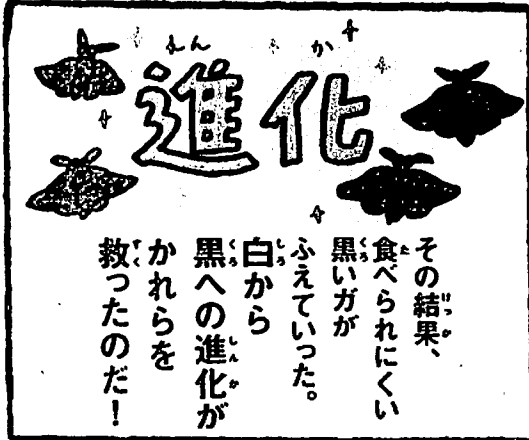 進化
その結果、
食べられにくい
黒いガが
ふえていった。
白から
黒への進化が
かれらを
救ったのだ！